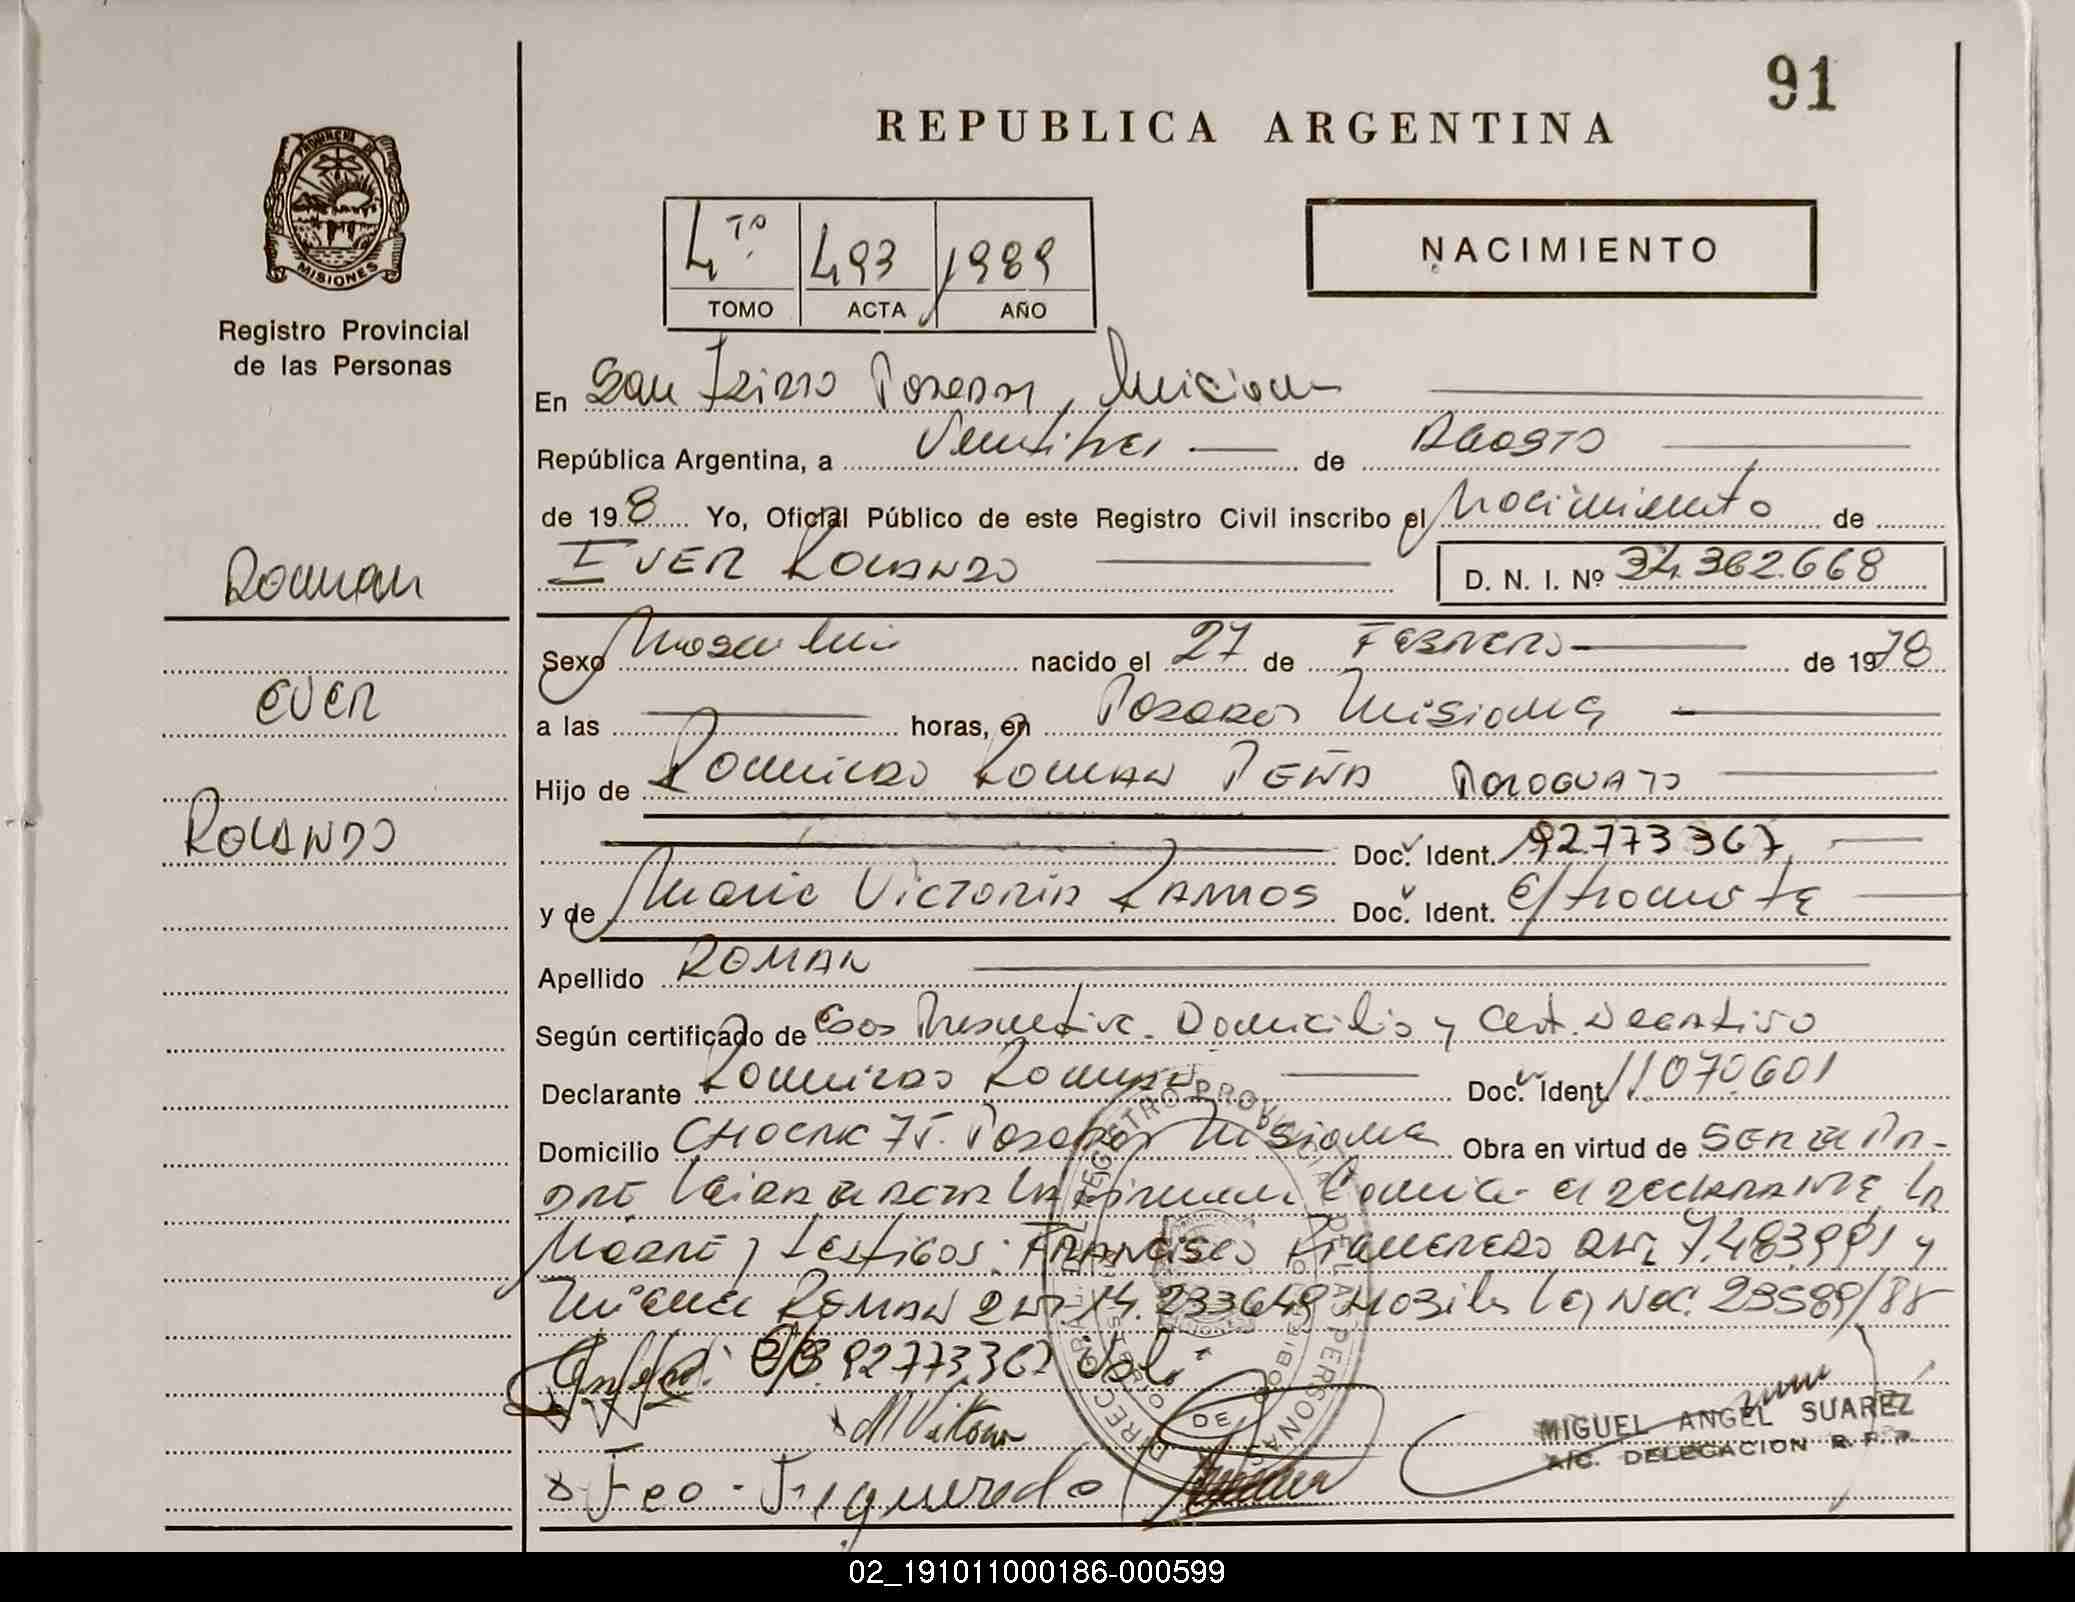 91
REPUBLICA ARGENTINA
PROVINCIA DE
MISIONES
Registro Provincial
de las Personas
4to. 493 1989
TOMO ACTA AÑO
NACIMIENTO
En San Isidro Posadas, Misiones
República Argentina, a Veintitres de Agosto
de 198 Yo, Oficial Público de este Registro Civil inscribo el Nacimiento de
EVER ROLANDO D. N. I. Nº 34.362.668
Roman
EVER
ROLANDO
Sexo Masculino nacido el 27 de FEBRERO de 1978
a las horas, en Posadas Misiones
Hijo de ROMAN PEÑA Paraguayo
Doc. Ident. 92.773367
y de Maria VICTORIA RAMOS Doc. Ident. E/tramite
Apellido ROMAN
Según certificado de Edad Presuntiva. Domicilio y Cert. Negativo
Declarante Roman Doc. Ident. 11.070601
Domicilio 75. Posadas Misiones Obra en virtud de
DRE el DECLARANTE, la
Madre y testigos: FRANCISCO 7.483.991 y
Miguel ROMAN 14.233649 23589/88
92773.367 Vale
M Vitoria
Fco - Figueredo
MIGUEL ANGEL SUAREZ
A/C. DELEGACION R. P. P.
02_191011000186-000599